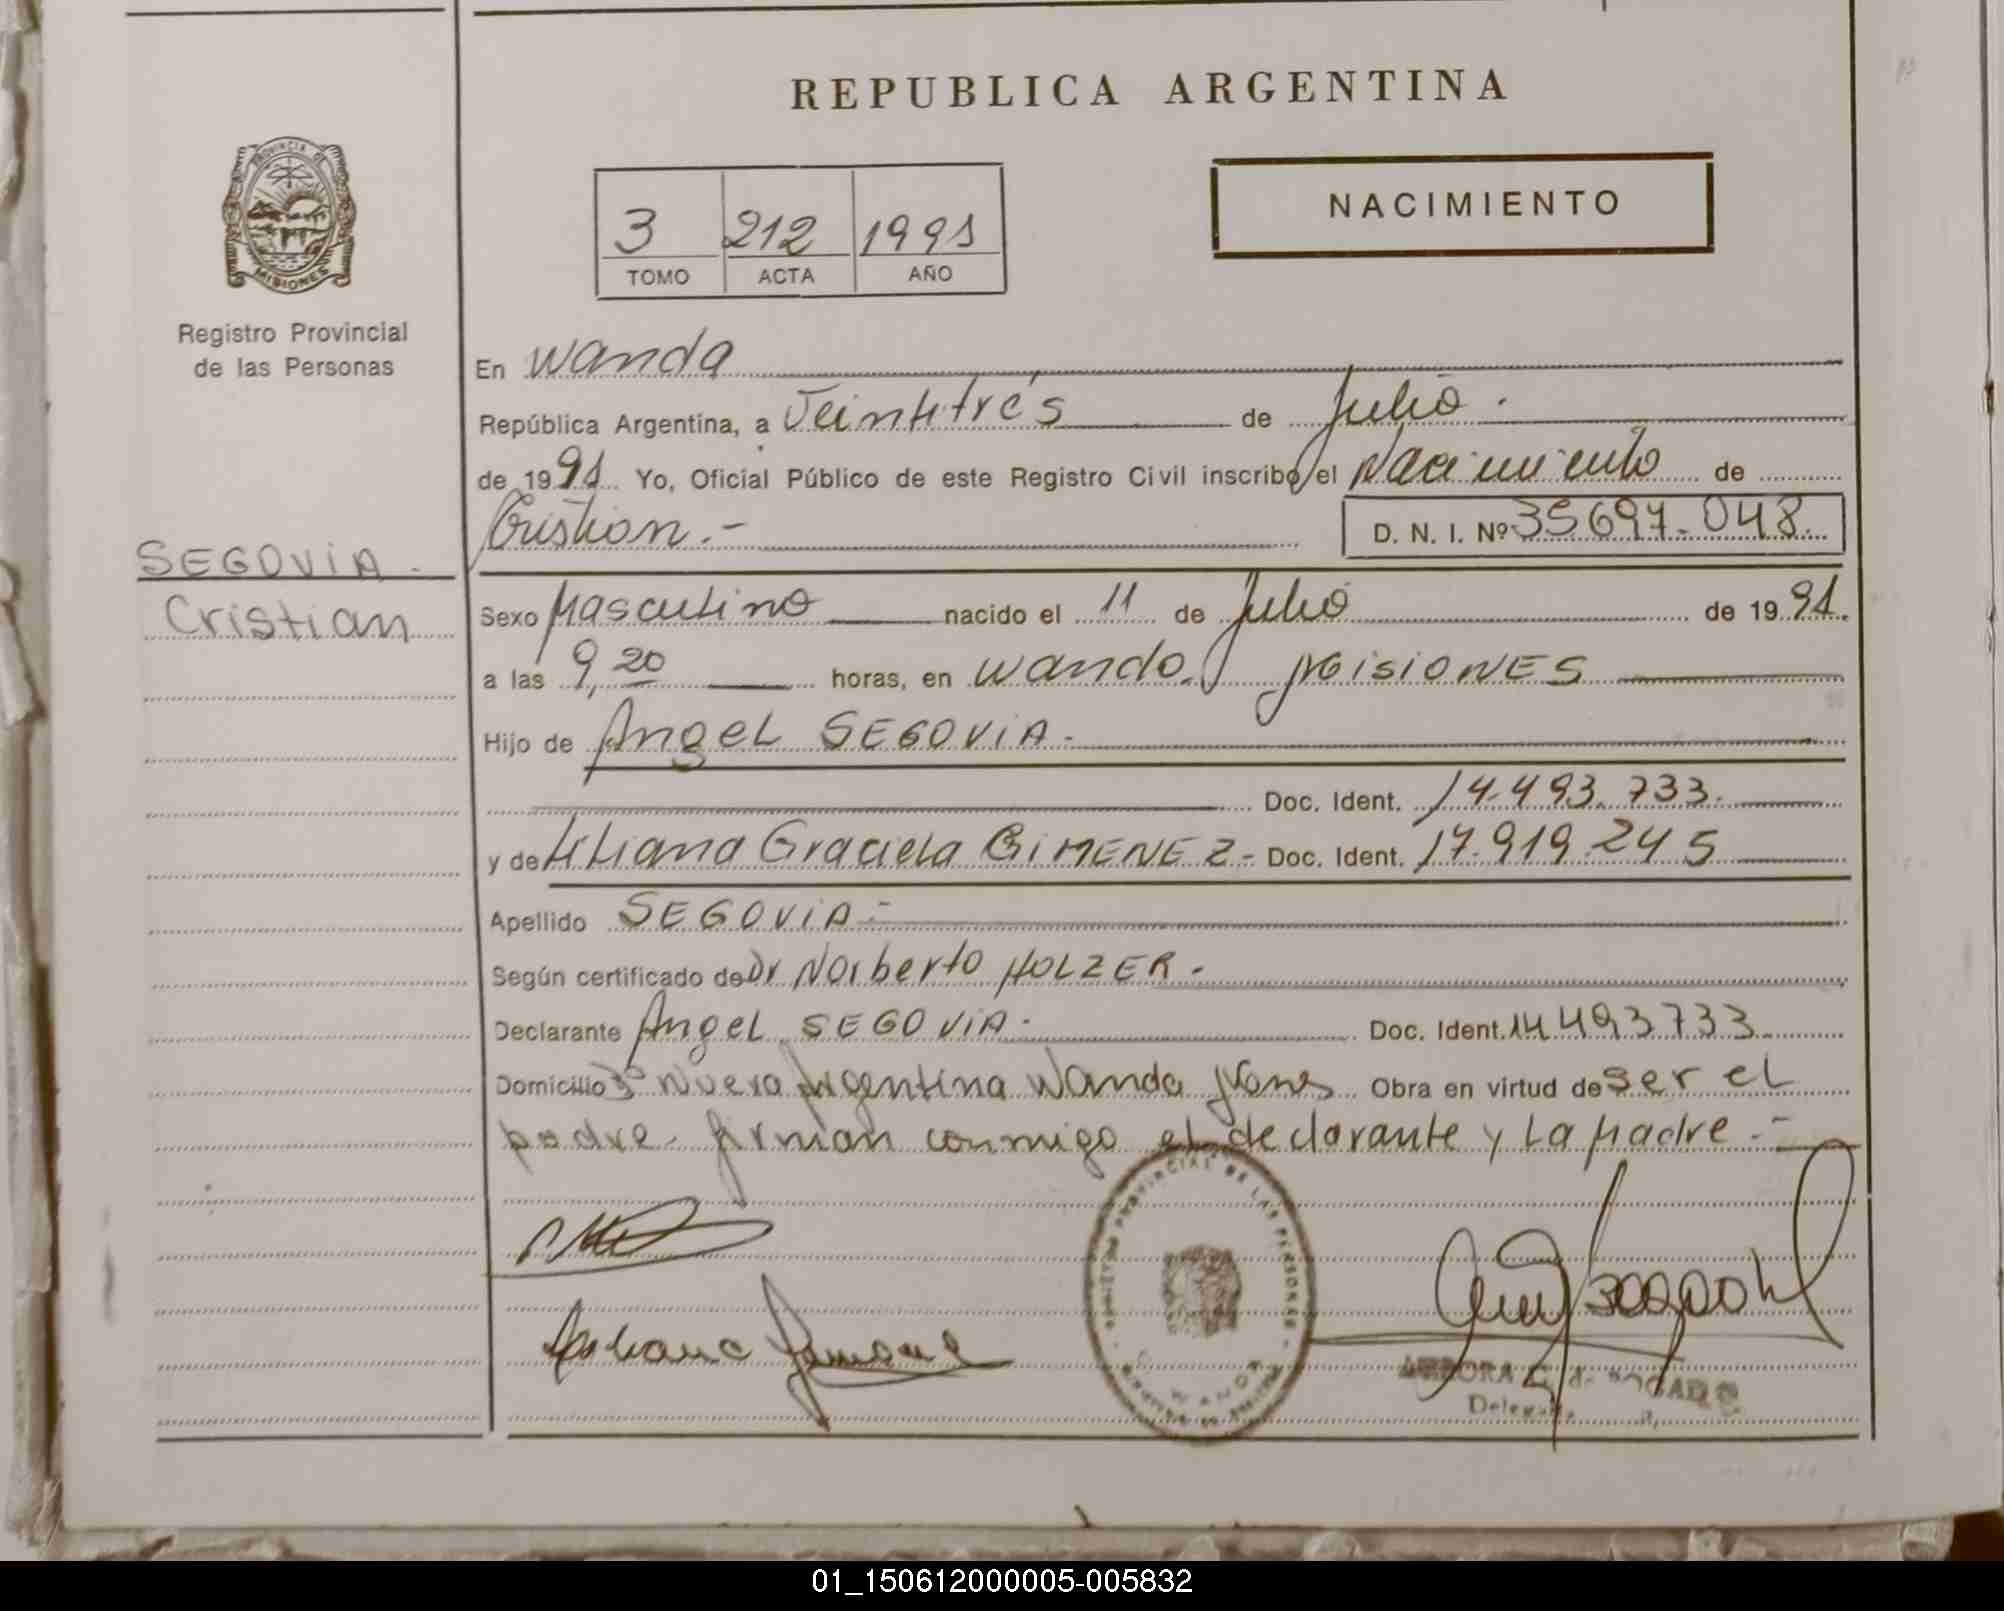 REPUBLICA ARGENTINA
PROVINCIA DE
MISIONES
Registro Provincial
de las Personas
NACIMIENTO
3 212 1991
TOMO ACTA AÑO
En Wanda
República Argentina, a Veintitrés de Julio.
de 1991 Yo, Oficial Público de este Registro Civil inscribo el Nacimiento de
Cristian.- D. N. I. Nº 35697.048.
SEGOVIA.
Cristian
Sexo Masculino nacido el 11 de Julio de 1991.
a las 9,20 horas, en Wanda, Misiones
Hijo de Angel SEGOVIA.
Doc. Ident. 14.493.733.
y de Liliana Graciela GIMENEZ- Doc. Ident. 17.919.245
Apellido SEGOVIA-
Según certificado de Dr Norberto HOLZER.
Declarante Angel SEGOVIA. Doc. Ident. 14493733
Domicilio Bº Nueva Argentina Wanda Mones Obra en virtud de ser el
padre. firman conmigo el declarante y La Madre.-
REGISTRO PROVINCIAL DE LAS PERSONAS
WANDA
Liliana
AURORA BOGADO
01_150612000005-005832